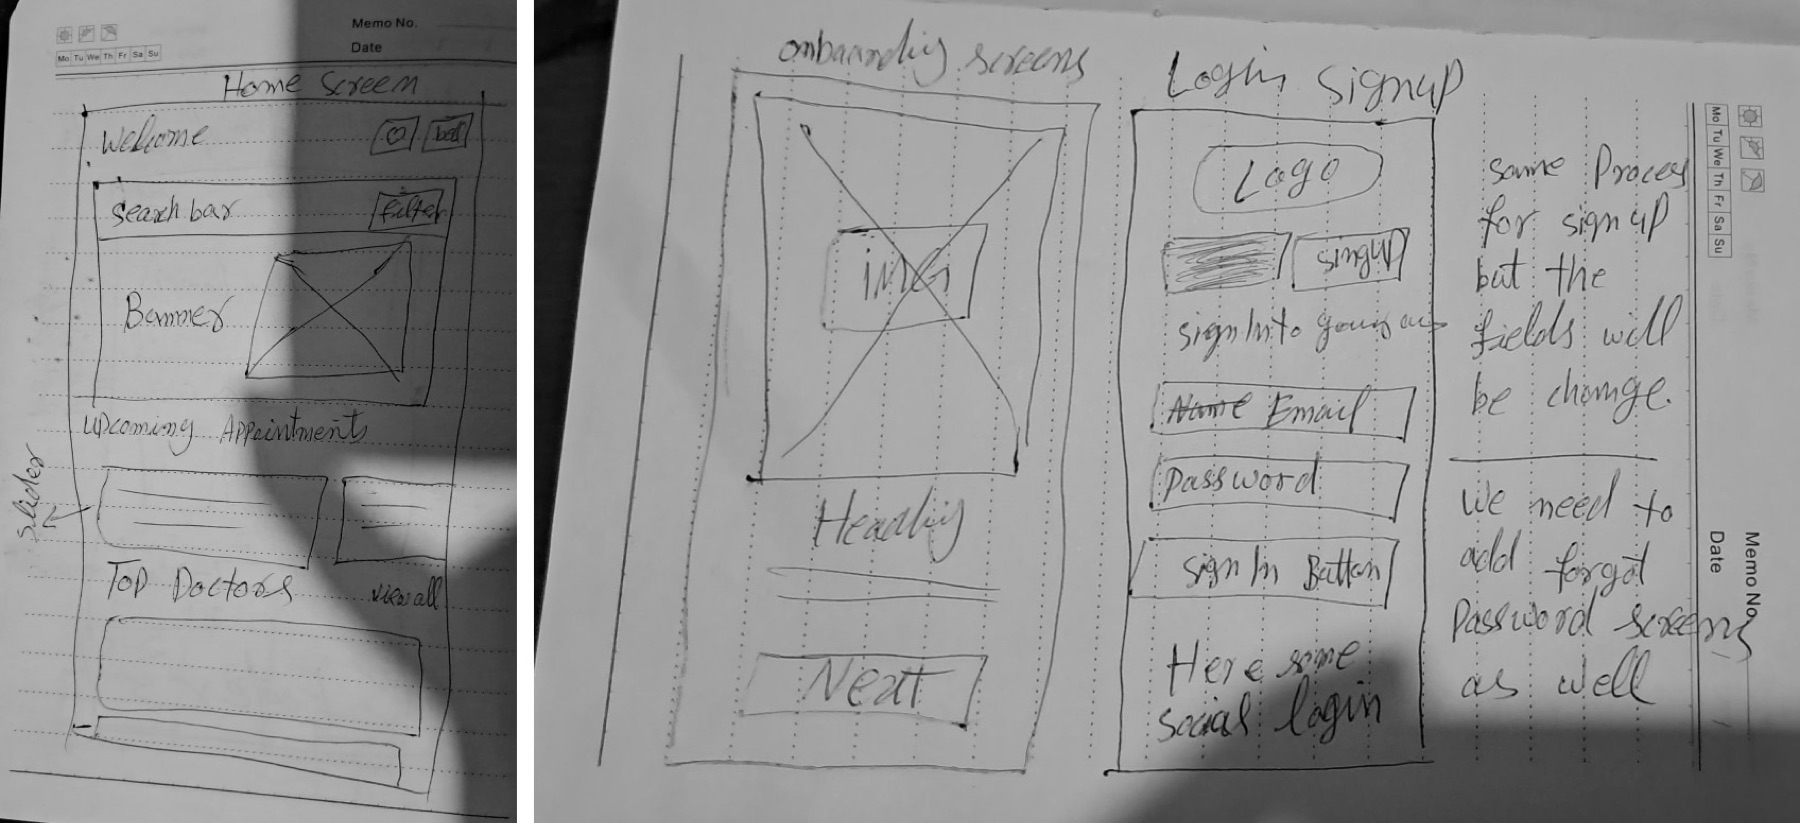 Memo No.
Date
Mo Tu We Th Fr Sa Su
Home Screen
Welcome
bell
Search bar
filter
Banner
Upcoming Appointments
slider
Top Doctors
view all
onboarding screens
iMG
Heading
Next
Login Signup
Logo
singup
sign In to your
Name Email
Password
Sign In Button
Here some
social login
same Process
for sign up
but the
fields will
be change.
we need to
add forgot
Password screens
as well
Mo Tu We Th Fr Sa Su
Memo No.
Date